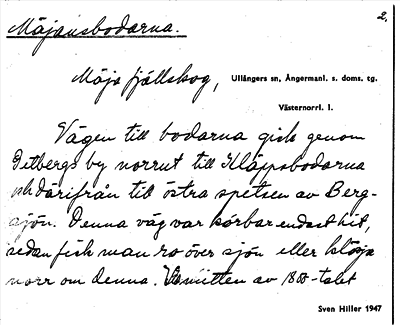 2.
Mäjansbodarna.
Mäja fjällskog, Ullångers sn, Ångermanl. s. doms. tg.
Västernorrl. l.
Vägen till bodarna gick genom
by norrut till Kläppsbodarna
och därifrån till östra spetsen av Berg-
sjön. Denna väg var körbar endast hit,
sedan fick man ro över sjön eller klöja
norr om denna. mitten av 1800-talet
Sven Hiller 1947